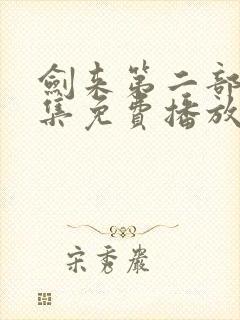 劍来第二部
集免費播放
宋秀嚴